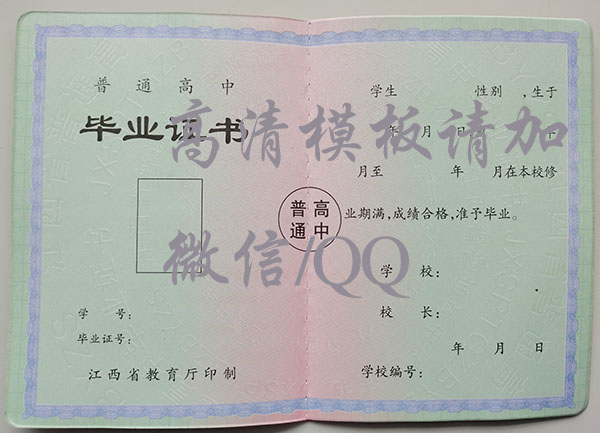 普通高中
毕业证书
学号：
毕业证号：
江西省教育厅印制
普高
通中
学生 性别 ，生于
年 月 日 年
月至 年 月在本校修
业期满，成绩合格，准予毕业。
学校：
校长：
年 月 日
学校编号：
高清模板请加
微信/QQ